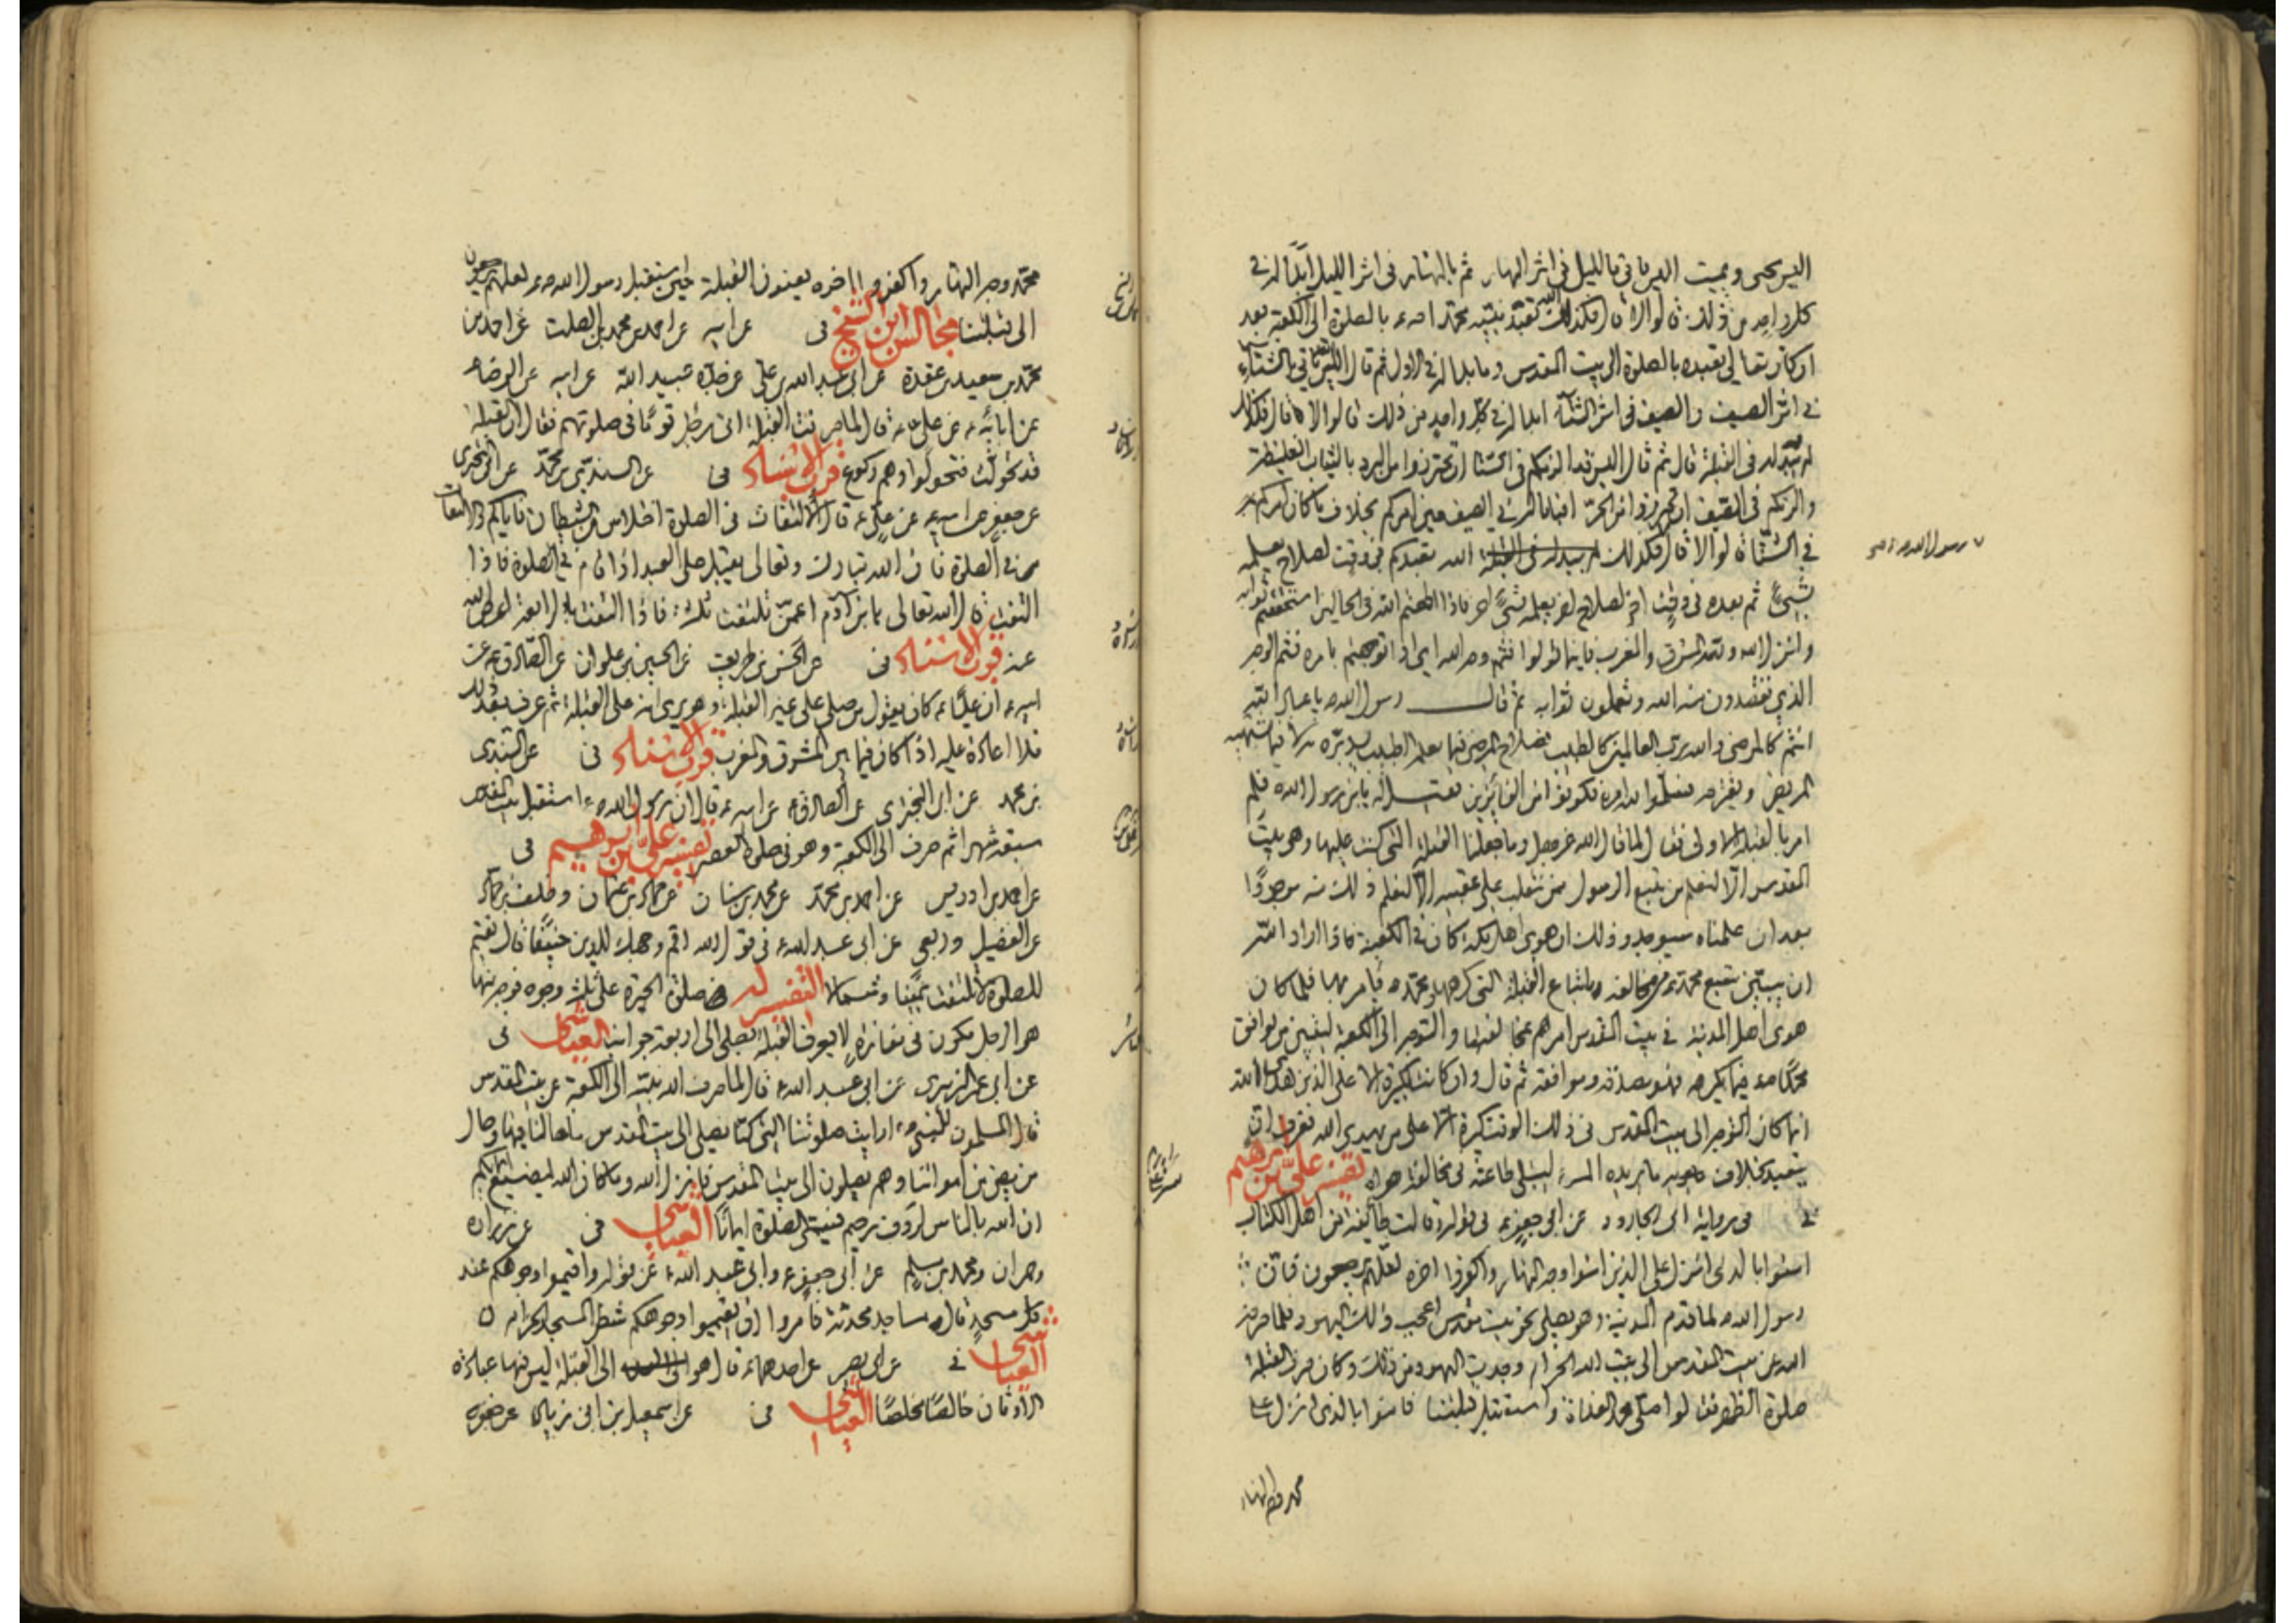 اليس يحيى ويميت اليس يأتي بالليل في اثر النهار ثم بالنهار في اثر الليل ابدا له في
كل واحد من ذلك قالوا لا قال فكذلك الله تعبد نبيه محمدا ص بالصلوة الى الكعبة بعد
ان كان تعالى تعبده بالصلوة الى بيت المقدس وما بدا له في الاول ثم قال اليس الله يأتي بالشتاء
في اثر الصيف والصيف في اثر الشتاء ابدا له في كل واحد من ذلك قالوا لا قال فكذلك
لم يبد له في القبلة قال ثم قال اليس قد الزمكم في الشتاء ان تحترزوا من البرد بالثياب الغليظة
والزمكم في الصيف ان تحترزوا من الحر افبدا له في الصيف حين امركم بخلاف ما كان امركم به
في الشتاء قالوا لا قال فكذلك الله تعبدكم في وقت لصلاح يعلمه
بشيء ثم بعده في وقت اخر لصلاح اخر يعلمه بشيء اخر فاذا اطعتم الله في الحالين استحققتم ثوابه
وانزل الله ولله المشرق والمغرب فاينما تولوا فثم وجه الله اي اذا توجهتم بامره فثم الوجه
الذي تقصدون منه الله وتأملون ثوابه ثم قال رسول الله ص يا عباد الله
انتم كالمرضى والله رب العالمين كالطبيب فصلاح المرضى فيما يعلمه الطبيب يدبره به لا فيما يشتهيه
المريض ويقترحه فسلموا لله امره تكونوا من الفائزين فقيل له يا بن رسول الله فلم
امر بالقبلة الاولى فقال لما قال الله عز وجل وما جعلنا القبلة التي كنت عليها وهي بيت
المقدس الا لنعلم من يتبع الرسول ممن ينقلب على عقبيه الا لنعلم ذلك منه موجودا
بعد ان علمناه سيوجد وذلك ان هوى اهل مكة كان في الكعبة فاذا اراد الله
ان يبين متبع محمد من مخالفه باتباع القبلة التي كرهها ومحمد ص يأمر بها فلما كان
هوى اهل المدينة في بيت المقدس امرهم بمخالفتها والتوجه الى الكعبة ليتبين من يوافق
محمدا ص فيما يكرهه فهو يصدقه ويوافقه ثم قال وان كانت لكبيرة الا على الذين هدى الله
انما كان التوجه الى بيت المقدس في ذلك الوقت كبيرة الا على من يهدي الله فعرف ان
يتعبد بخلاف ما يريده المرء ليبتلي طاعته في مخالفة هواه تفسير علي بن ابرهيم
في في رواية ابي الجارود عن ابي جعفر ع في قوله وقالت طائفة من اهل الكتاب
امنوا بالذي انزل على الذين امنوا وجه النهار واكفروا اخره لعلهم يرجعون فان
رسول الله ص لما قدم المدينة وهو يصلي نحو بيت المقدس اعجب ذلك اليهود فلما صرفه
الله عن بيت المقدس الى بيت الله الحرام وجدت اليهود من ذلك وكان صرف القبلة
صلوة الظهر فقالوا صلى محمد الغداة واستقبل قبلتنا فامنوا بالذي انزل على
محمد وجه النهار
رسول الله
محمد وجه النهار واكفروا اخره يعنون القبلة حين استقبل رسول الله ص لعلهم يرجعون
الى قبلتنا مجالس ابن الشيخ في عن ابيه عن احمد بن محمد بن الصلت عن احمد بن
محمد بن سعيد بن عقدة عن ابي عبد الله بن علي عن جده عبيد الله عن ابيه عن الرضا ع
عن ابائه ع عن علي ع قال لما صرفت القبلة اتى رجل قوما في صلوتهم فقال ان القبلة
قد تحولت فتحولوا وهم ركوع قرب الاسناد في عن السندي بن محمد عن ابي البختري
عن جعفر عن ابيه عن علي ع قال الالتفات في الصلوة اختلاس من الشيطان فاياكم والالتفات
في الصلوة فان الله تبارك وتعالى يقبل على العبد اذا قام في الصلوة فاذا
التفت قال الله تعالى يا بن آدم اعمن تلتفت ثلثة فاذا التفت الرابعة اعرض الله
عنه قرب الاسناد في عن الحسن بن ظريف عن الحسين بن علوان عن الصادق ع عن
ابيه ع ان عليا ع كان يقول من صلى على غير القبلة وهو يرى انه على القبلة ثم عرف بعد ذلك
فلا اعادة عليه اذا كان فيما بين المشرق والمغرب قرب الاسناد في عن السندي
بن محمد عن ابي البختري عن الصادق ع عن ابيه ع قال ان رسول الله ص استقبل بيت المقدس
سبعة عشر شهرا ثم صرف الى الكعبة وهو في صلوة العصر تفسير علي بن ابرهيم في
عن احمد بن ادريس عن احمد بن محمد عن محمد بن سنان عن حماد بن عثمان وخلف بن حماد
عن الفضيل وربعي عن ابي عبد الله ع في قول الله اقم وجهك للدين حنيفا قال تقيم
للصلوة لا تلتفت يمينا وشمالا التفسير له صلوة الحيرة على ثلثة وجوه فوجه منها
هو الرجل يكون في مفازة لا يعرف القبلة يصلي الى اربعة جوانب العياشي في
عن ابي عمرو الزبيري عن ابي عبد الله ع قال لما صرف الله نبيه الى الكعبة عن بيت المقدس
قال المسلمون للنبي ص ارأيت صلوتنا التي كنا نصلي الى بيت المقدس ما حالنا فيها وحال
من مضى من امواتنا وهم يصلون الى بيت المقدس فانزل الله وما كان الله ليضيع ايمانكم
ان الله بالناس لرؤف رحيم فسمى الصلوة ايمانا العياشي في عن زرارة
وحمران ومحمد بن مسلم عن ابي جعفر ع وابي عبد الله ع عن قوله واقيموا وجوهكم عند
كل مسجد قال مساجد محدثة فامروا ان يقيموا وجوهكم شطر المسجد الحرام
العياشي في عن ابي بصير عن احدهما ع قال هو الى القبلة ليس فيها عبادة
الاوثان خالصا مخلصا العياشي في عن اسمعيل بن ابي زياد عن جعفر